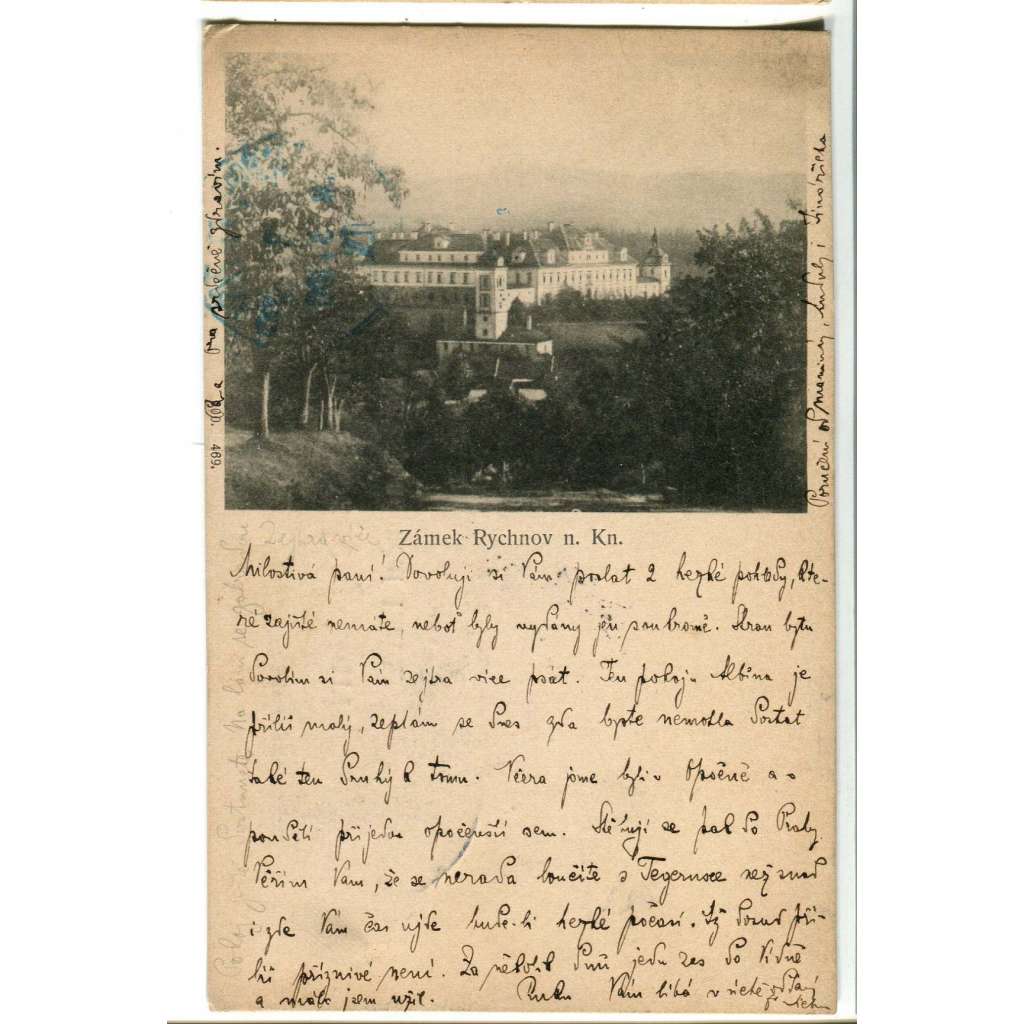 Zámek Rychnov n. Kn.
Milostivá paní! Dovoluji si Vám poslat 2 hezké pohledy, kte-
ré zajisté nemáte, neboť byly vydány jen soukromě. Stran bytu
dovolím si Vám zejtra více psát. Ten pokoj Albína je
příliš malý, zeptám se dnes zda byste nemohla dostat
také ten druhý k tomu. Včera jsme byli v Opočně a v
pondělí přijedou opočenští sem. Stěhují se pak do Prahy.
Věřím Vám, že se nerada loučíte s Tegernsee než snad
i zde Vám čas ujde bude-li hezké počasí. Až dosud pří-
liš příznivé není. Za několik dnů jedu zas do Vídně
a málo jsem užil. Ruku Vám líbá v úctě oddaný
469.
srdečně zdravím.
Poručení od maminky,